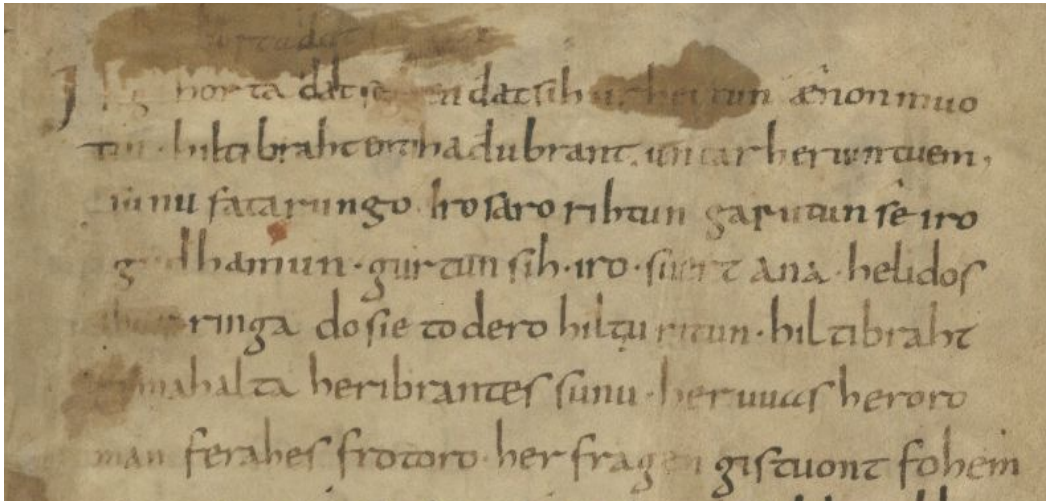 Ik gihorta dat seggen dat sih urhettun ænon muo
tin · hiltibraht enti haðubrant · untar heriun tuem,
sunu fatarungo · iro saro rihtun garutun se iro
guðhamun · gurtun sih · iro · suert ana · helidos
ubar ringa do sie to dero hiltiu ritun · hiltibraht
gimahalta heribrantes sunu · her uuas heroro
man ferahes frotoro · her fragen gistuont fohem